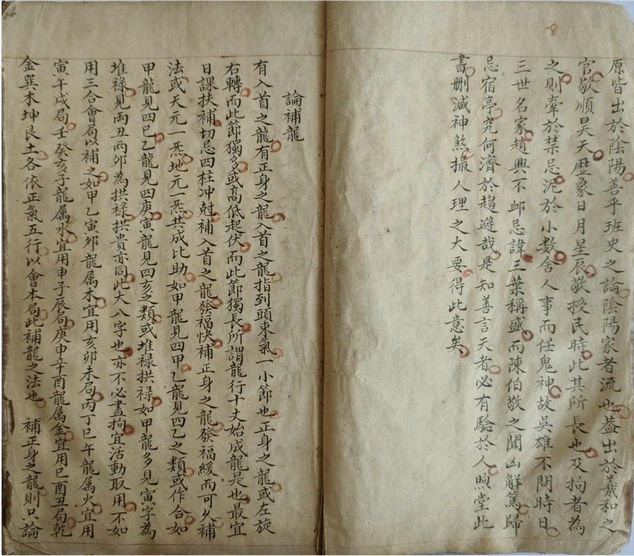 原皆出於陰陽善乎班史之論陰陽家者流也蓋出於羲和之
官敬順昊天歷象日月星辰敬授民時此其所長也及拘者為
之則牽於禁忌泥於小數舍人事而任鬼神故吳雄不問時日
三世名家趙興不邺忌諱三葉稱盛而陳伯敬之聞凶解駕歸
忌宿亭究何濟於趨避哉是知善言天者必有驗於人煦堂此
書刪滅神煞撮人理之大要得此意矣
論補龍
有入首之龍有正身之龍入首之龍指到頭束氣一小節也正身之龍或左旋
右轉而此節獨多或高低起伏而此節獨長所謂龍行十丈始成龍是也最宜
日課扶補切忌四柱冲尅補入首之龍發福快補正身之龍發福緩而可久補
法或天元一炁地元一炁共成比助如甲龍見四甲乙龍見四乙之類或作合如
甲龍見四巳乙龍見四庚寅龍見四亥之類或堆禄拱禄如甲龍多見寅字為
堆禄見兩丑兩卯為拱禄拱貴亦同此大八字也亦不必盡拘宜活動取用不如
用三合會局以補之如甲乙寅卯龍属木宜用亥卯未局丙丁巳午龍属火宜用
寅午戌局壬癸亥子龍属水宜用申子辰局庚申辛酉龍属金宜用巳酉丑局乾
金巽木坤艮土各依正氣五行以會本局此補龍之法也 補正身之龍則只論